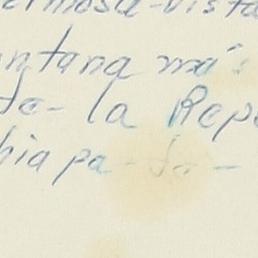 ermosa-vista
ntana más
te-la Repe
hiapa-